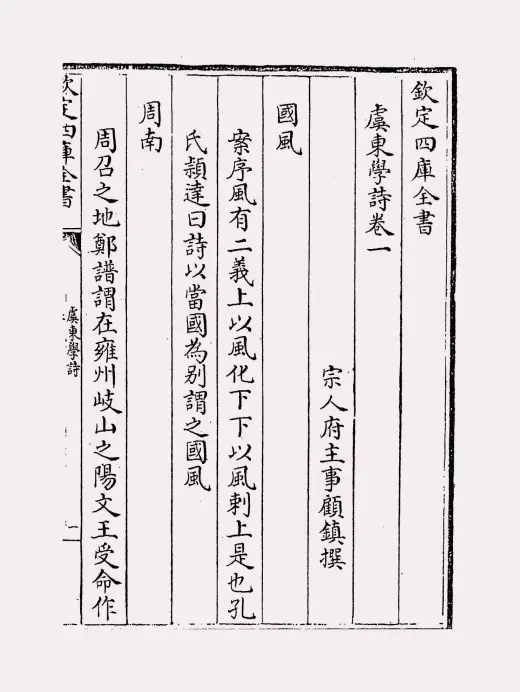 欽定四庫全書
虞東學詩卷一
宗人府主事顧鎮撰
國風
案序風有二義上以風化下下以風刺上是也孔
氏頴達曰詩以當國為别謂之國風
周南
周召之地鄭譜謂在雍州岐山之陽文王受命作
欽定四庫全書
虞東學詩
一